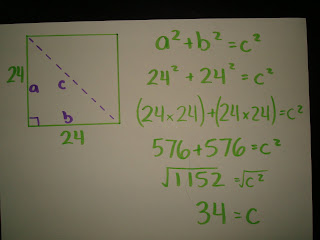 24
a
c
b
24
a² + b² = c²
24² + 24² = c²
(24 × 24) + (24 × 24) = c²
576 + 576 = c²
√1152 = √c²
34 = c